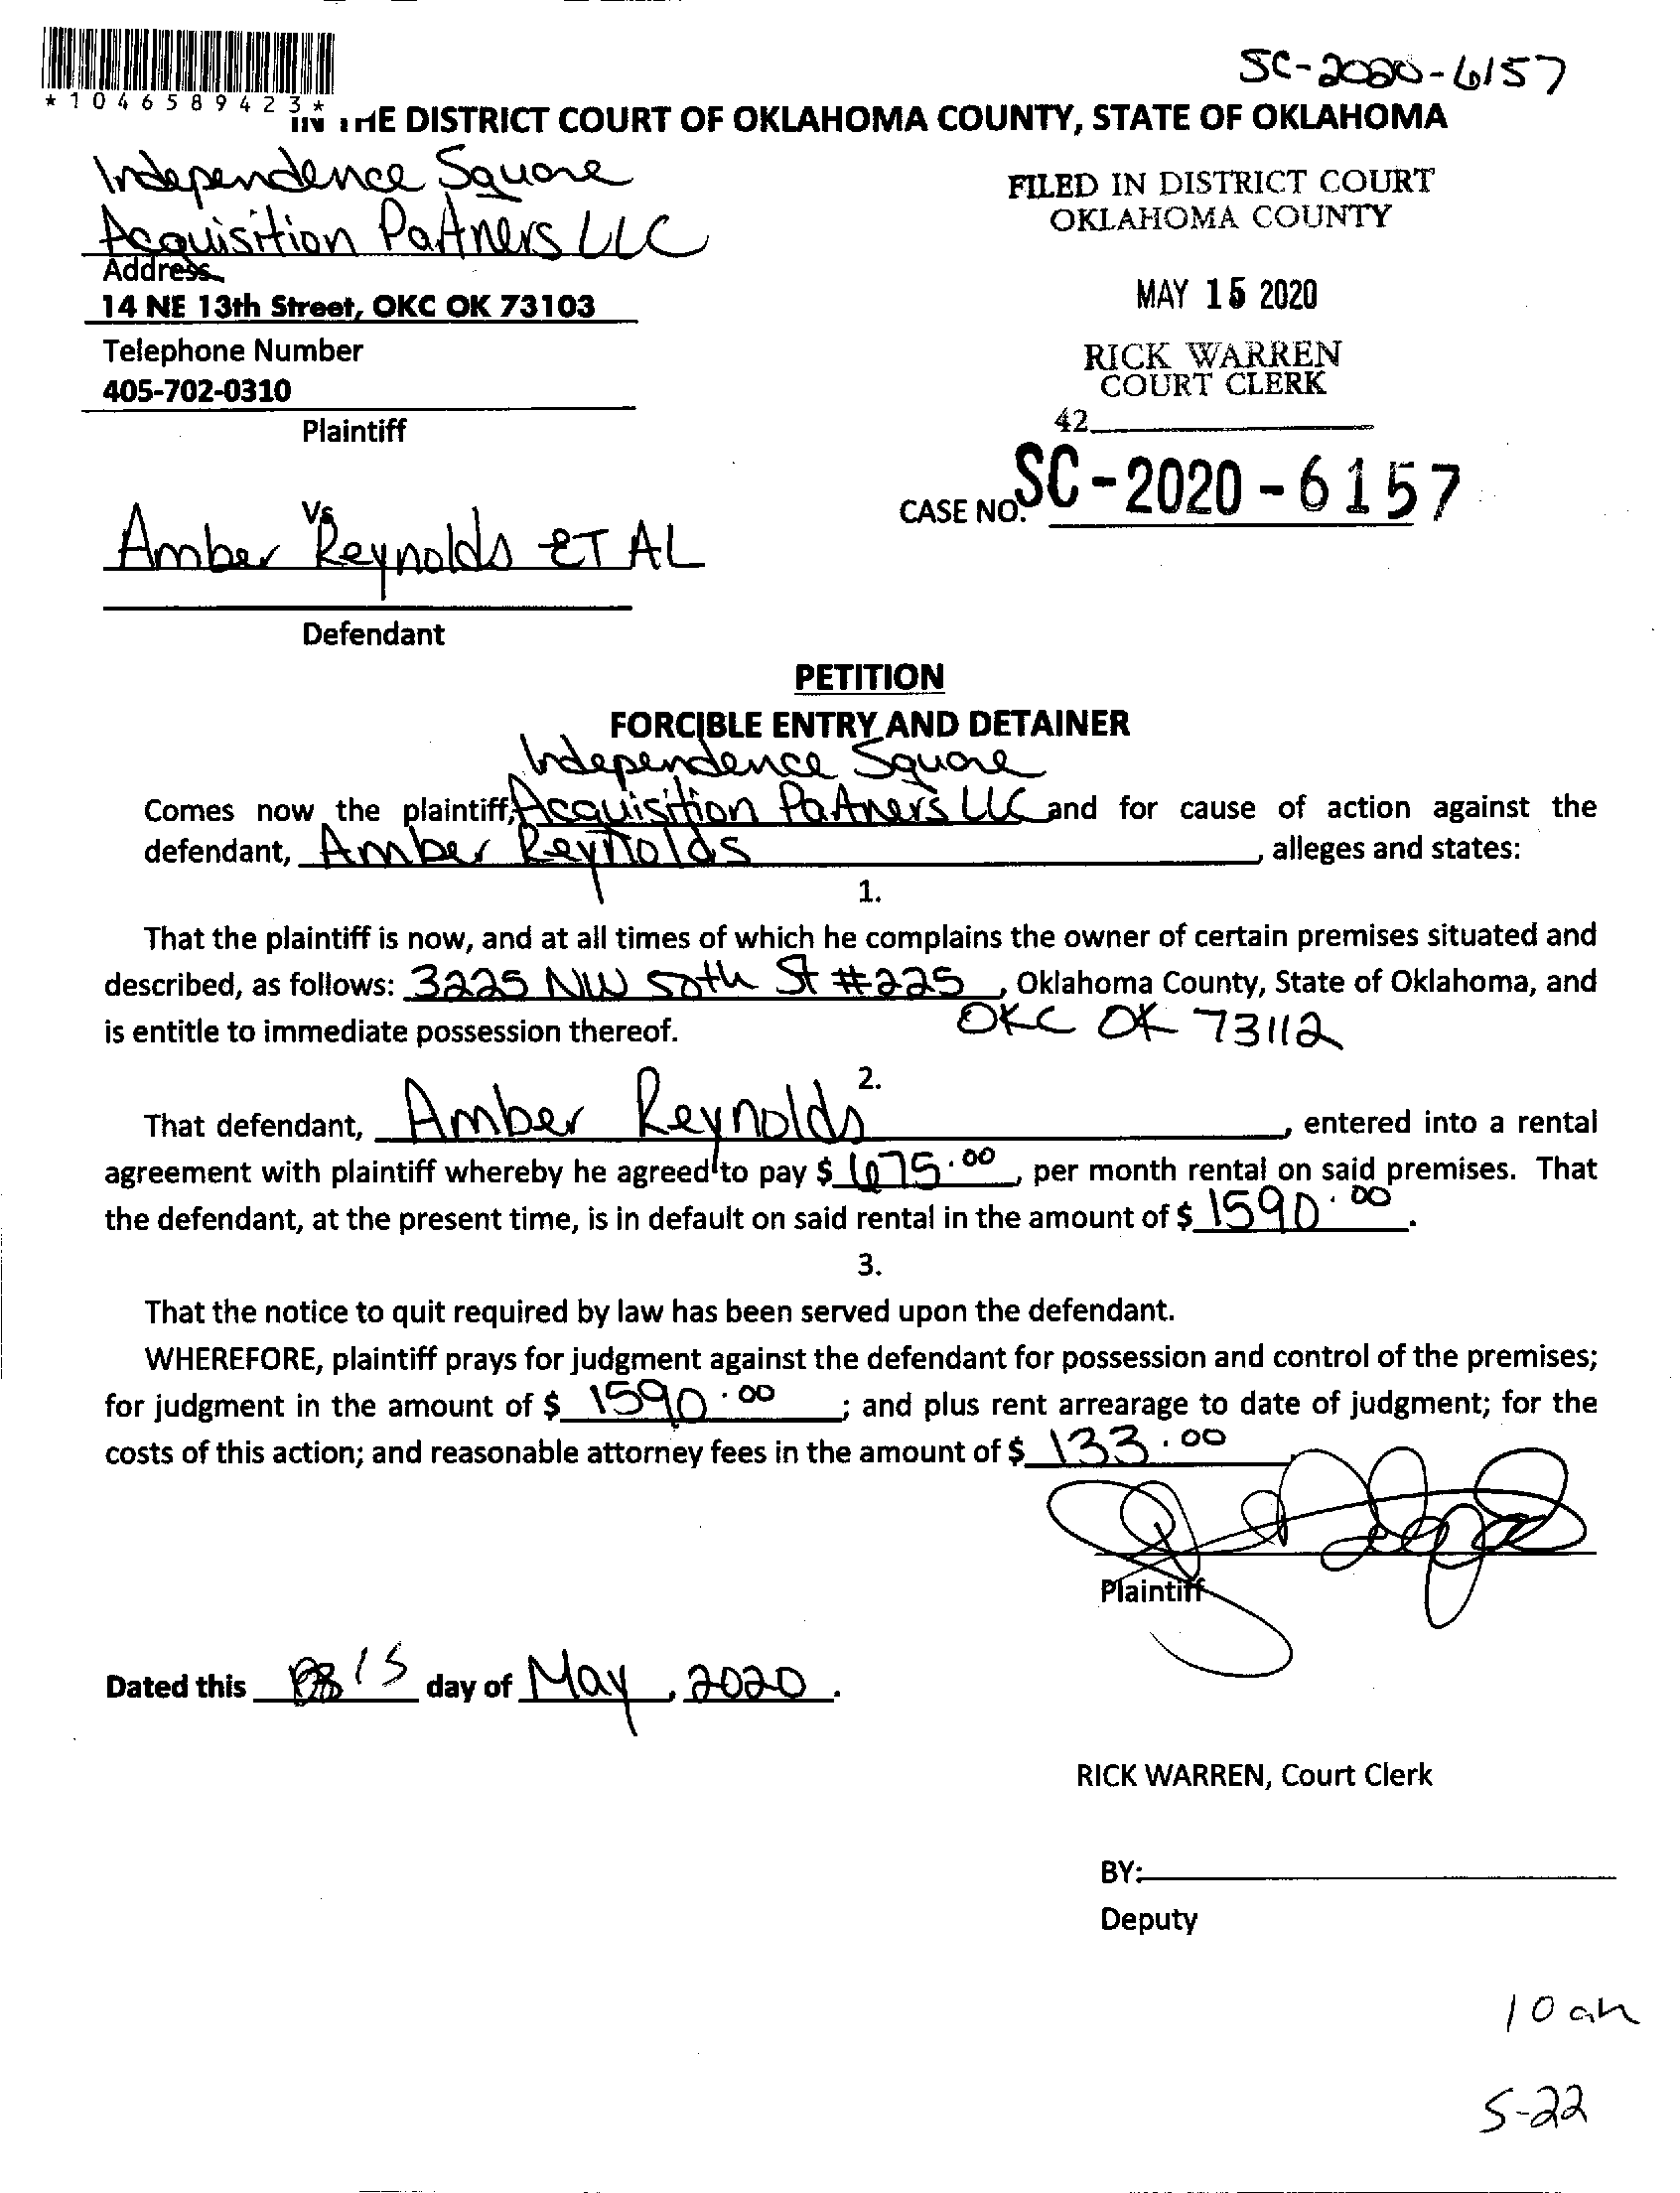 SC-2020-6157
*1046589423*
IN THE DISTRICT COURT OF OKLAHOMA COUNTY, STATE OF OKLAHOMA
Independence Square
Acquisition Partners LLC
Address
14 NE 13th Street, OKC OK 73103
Telephone Number
405-702-0310
Plaintiff
FILED IN DISTRICT COURT
OKLAHOMA COUNTY
MAY 15 2020
RICK WARREN
COURT CLERK
42
CASE NO. SC-2020-6157
Vs
Amber Reynolds ET AL
Defendant
PETITION
FORCIBLE ENTRY AND DETAINER
Independence Square
Comes now the plaintiff, Acquisition Partners LLC and for cause of action against the
defendant, Amber Reynolds, alleges and states:
1.
That the plaintiff is now, and at all times of which he complains the owner of certain premises situated and
described, as follows: 3225 NW 50th St #225, Oklahoma County, State of Oklahoma, and
is entitle to immediate possession thereof. OKC OK 73112
2.
That defendant, Amber Reynolds, entered into a rental
agreement with plaintiff whereby he agreed to pay $ 675.00, per month rental on said premises. That
the defendant, at the present time, is in default on said rental in the amount of $ 1590.00.
3.
That the notice to quit required by law has been served upon the defendant.
WHEREFORE, plaintiff prays for judgment against the defendant for possession and control of the premises;
for judgment in the amount of $ 1590.00; and plus rent arrearage to date of judgment; for the
costs of this action; and reasonable attorney fees in the amount of $ 133.00
Plaintiff
Dated this 15 day of May, 2020.
RICK WARREN, Court Clerk
BY:
Deputy
10 am
5-22